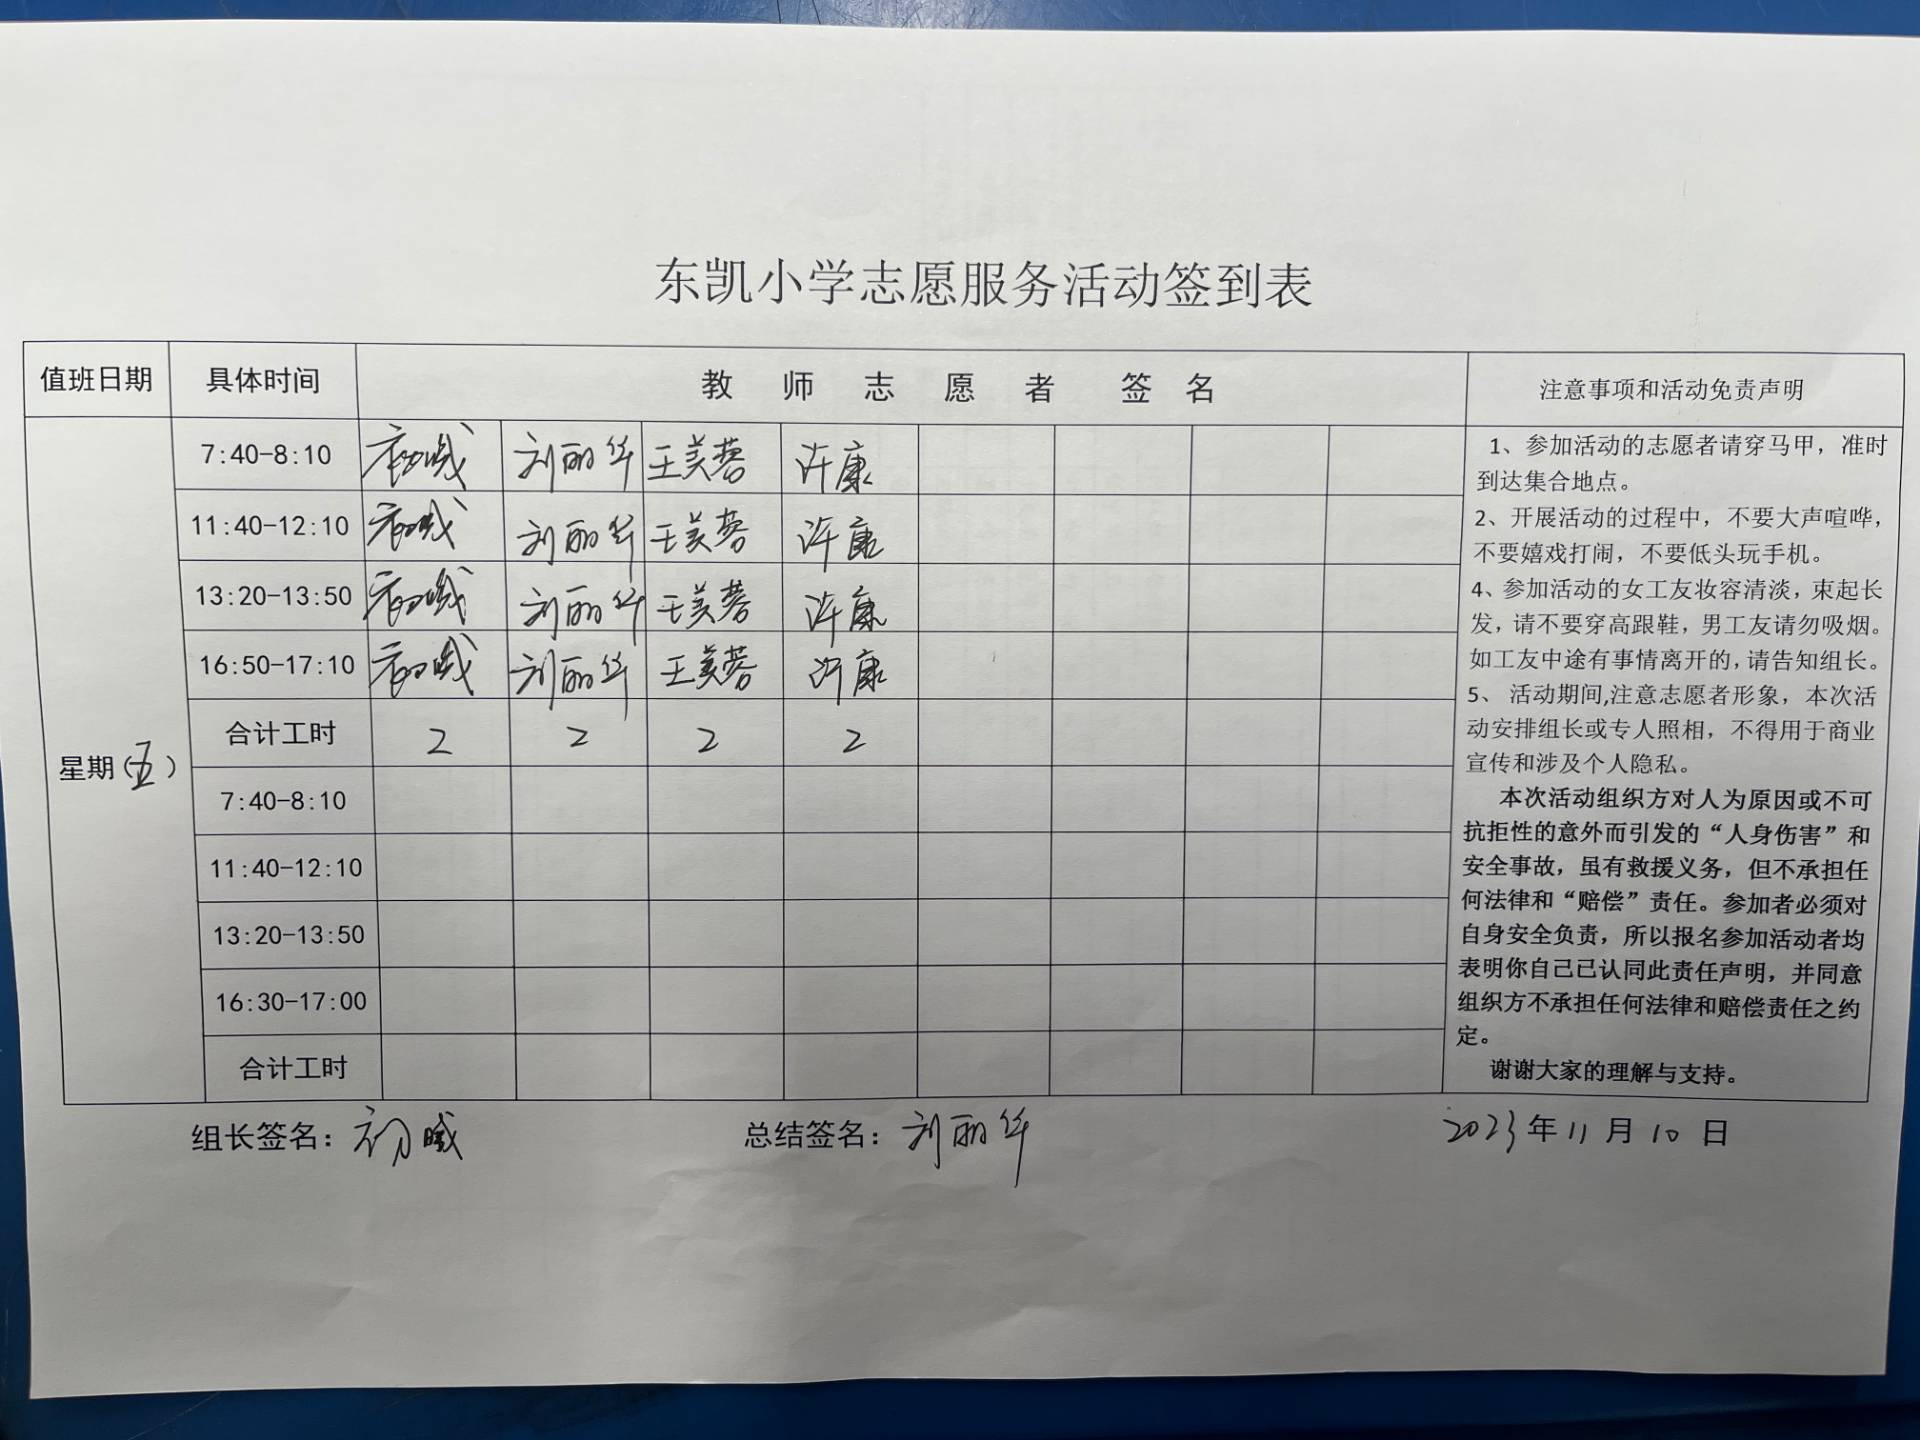 东凯小学志愿服务活动签到表
值班日期 具体时间 教师志愿者 签名 注意事项和活动免责声明
星期（五）
7:40-8:10 刘丽华 王美蓉 许康
11:40-12:10 刘丽华 王美蓉 许康
13:20-13:50 刘丽华 王美蓉 许康
16:50-17:10 刘丽华 王美蓉 许康
合计工时 2 2 2 2
7:40-8:10
11:40-12:10
13:20-13:50
16:30-17:00
合计工时
1、参加活动的志愿者请穿马甲，准时
到达集合地点。
2、开展活动的过程中，不要大声喧哗，
不要嬉戏打闹，不要低头玩手机。
4、参加活动的女工友妆容清淡，束起长
发，请不要穿高跟鞋，男工友请勿吸烟。
如工友中途有事情离开的，请告知组长。
5、 活动期间,注意志愿者形象，本次活
动安排组长或专人照相，不得用于商业
宣传和涉及个人隐私。
本次活动组织方对人为原因或不可
抗拒性的意外而引发的“人身伤害”和
安全事故，虽有救援义务，但不承担任
何法律和“赔偿”责任。参加者必须对
自身安全负责，所以报名参加活动者均
表明你自己已认同此责任声明，并同意
组织方不承担任何法律和赔偿责任之约
定。
谢谢大家的理解与支持。
组长签名： 总结签名：刘丽华 2023年11月10日